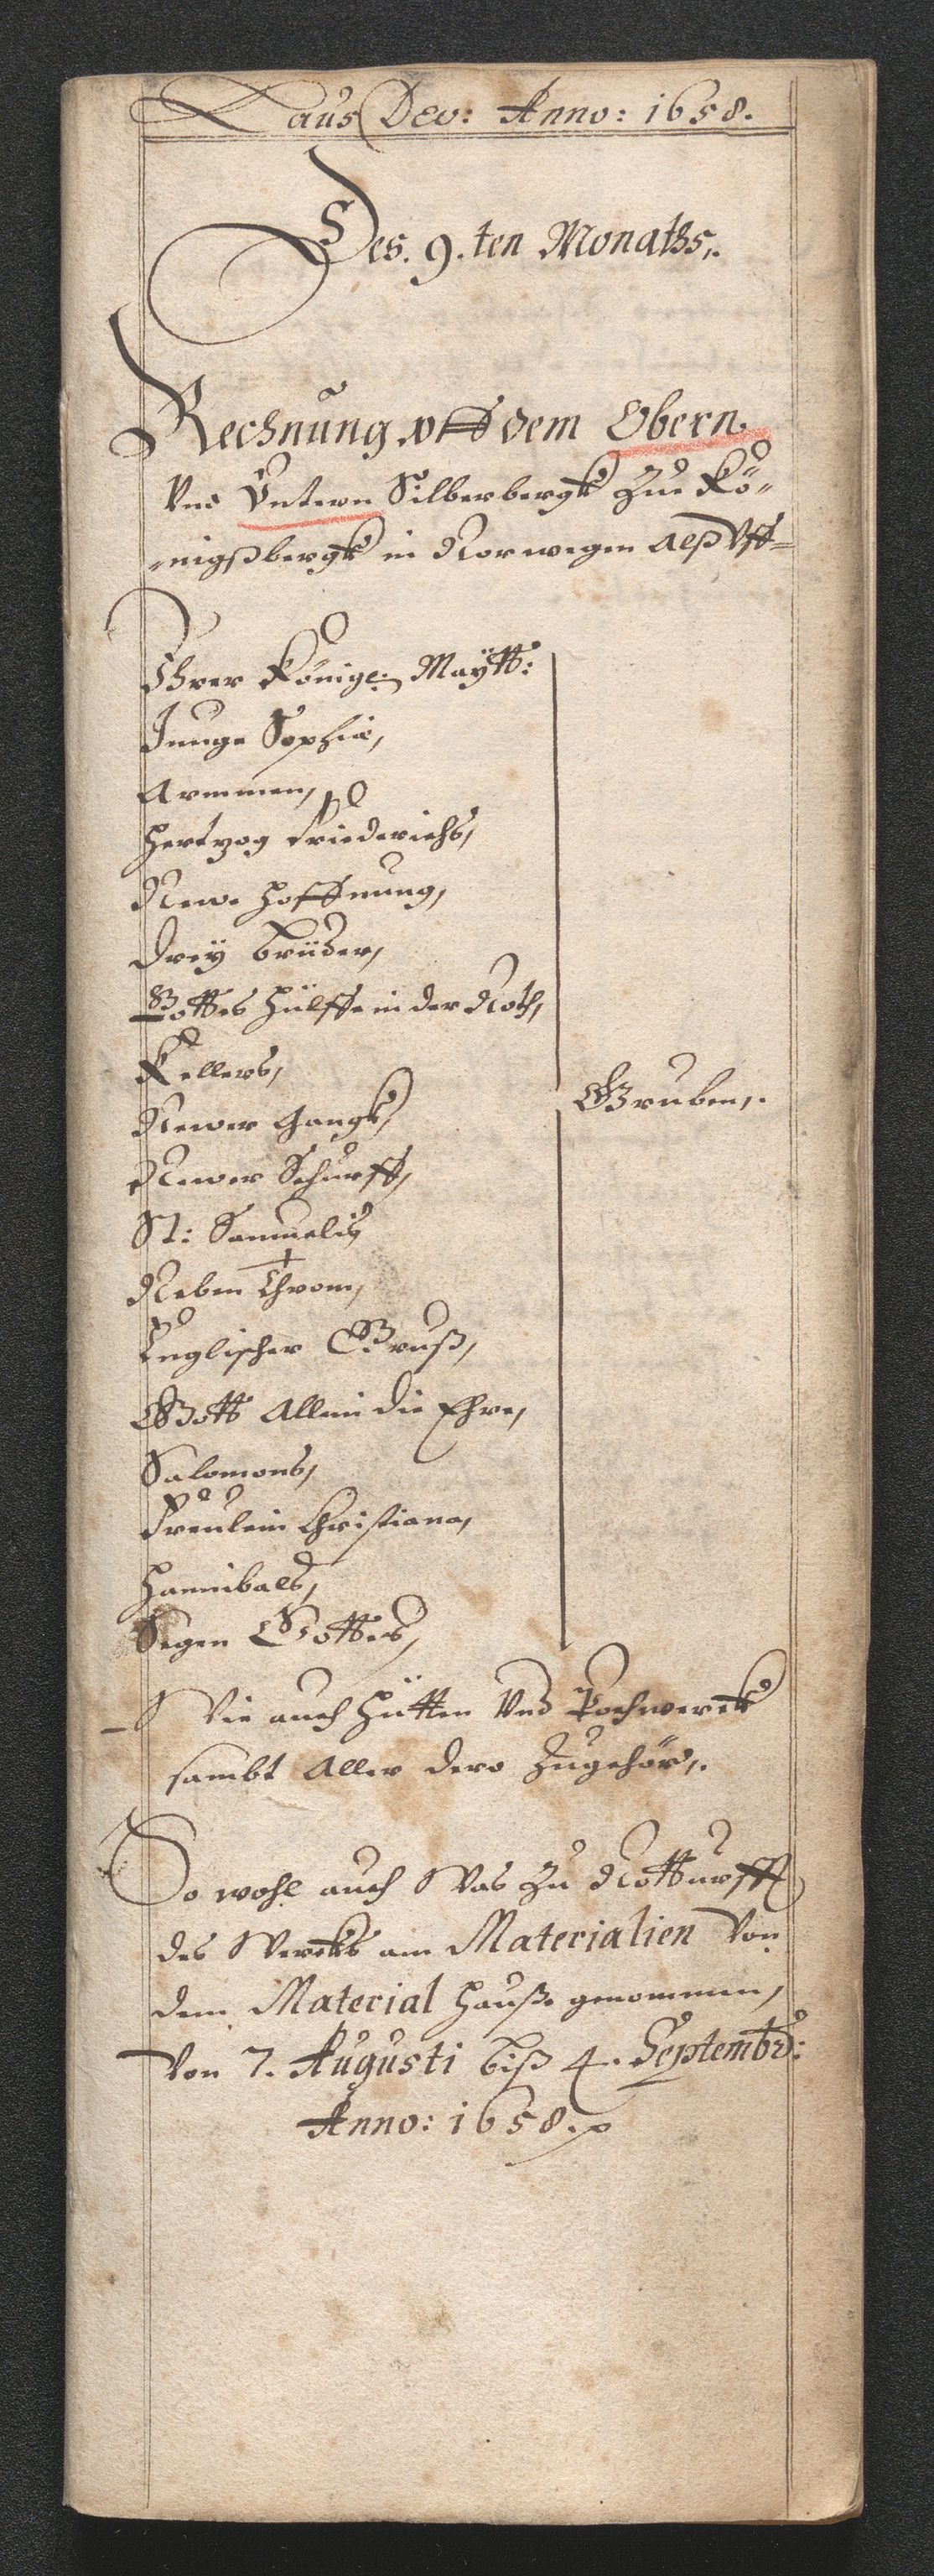 Laus Deo: Anno: 1658.
Des. 9.ten Monaths,.
Rechnung vff dem Obern.
Vnd Vntern Silberbergk Zue Kö„
„nigßbergk in Norwegen Alß Vff=
Ihrer Königl: Maÿtt:
Junge Sophia,
Armmen,
Hertzog Friederichs,
Newe Hoffnung,
Dreÿ Brüder,
Gottes Hülffe in der Noth,
Kellers,
Gruben,.
Newer Gangk,
Newer Schurff,
St: Samuelis
Neben Chron,
Englischer Gruß,
Gott Allein die Ehre,
Salomons,
Freulein Christiana,
Hannibals,
Segen Gottes,
Wie auch Hütten Vnd Pochwerck
sambt Aller dero Zugehör,.
So wohl auch Was Zu Notturfft
des Wercks am Materialien Von
dem Material Hauße genommen,
Von 7. Augusti biß 4. Septembr:
Anno: 1658.